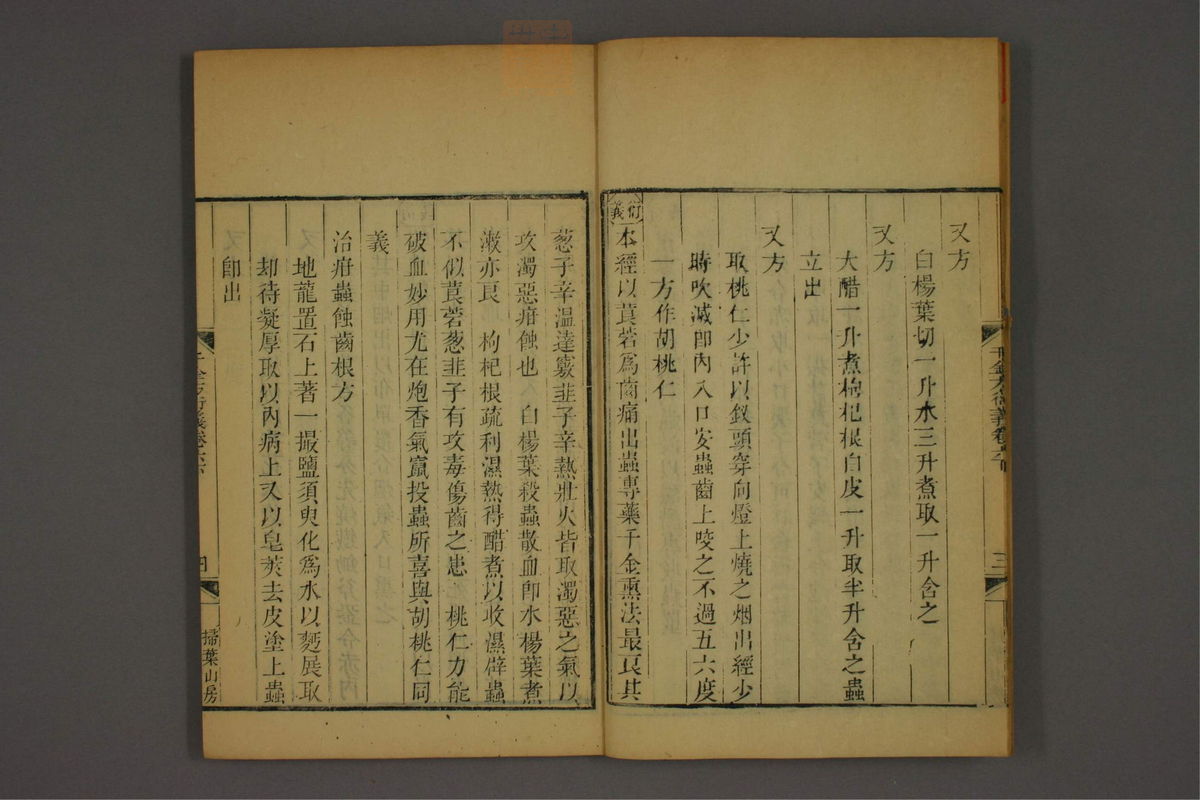 又方
白楊葉切一升水三升煮取一升含之
又方
大醋一升煮枸杞根白皮一升取半升含之蟲
立出
又方
取桃仁少許以釵頭穿向燈上燒之烟出經少
時吹滅卽內入口安蟲齒上咬之不過五六度
一方作胡桃仁
衍義 本經以莨菪爲齒痛出蟲專藥千金熏法最良其
千金方衍義卷六下
三
葱子辛温達竅韭子辛熱壯火皆取濁惡之氣以
攻濁惡疳蝕也 白楊葉殺蟲散血卽水楊葉煮
漱亦良 枸杞根疏利濕熱得醋煮以收濕辟蟲
不似莨菪葱韭子有攻毒傷齒之患 桃仁力能
破血妙用尤在炮香氣竄投蟲所喜與胡桃仁同
義
治疳蟲蝕齒根方
地龍置石上著一撮鹽須臾化爲水以麪展取
却待凝厚取以內病上又以皂莢去皮塗上蟲
卽出
千金方衍義卷六下
四
掃葉山房